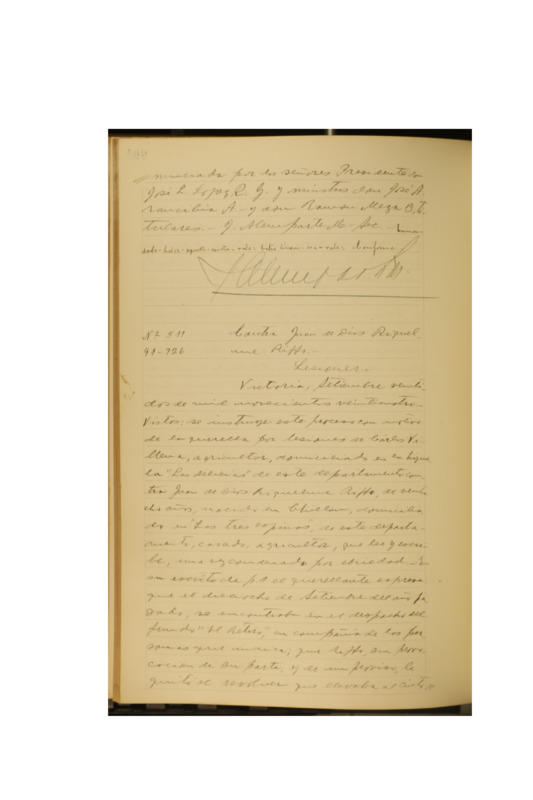 nunciada por los señores Presidente don
José L. López R. G. y ministros don José A.
A. y don Ramon Meza B, T.
tulares.- J. Alemparte M- Sec.-
vale - Conforme
No 511 Contra Juan de Dios Riquel
91-926 me Riffo.-
Lesiones.-
Victoria, Setiembre veinti
dos de mil novecientos veinticuatro.-
Vistos; se instruye este proceso con motivo
de la querella por lesiones de Carlos Vi
llena, agricultor, domiciliado en la hijue
la "Las delicias" de este departamento con
tra Juan de Dios Riquelme Riffo, de veinti
cho años, nacido en Chillan, domicilia
do en "Los tres espinos", de este departa-
mento, casado, agricultor, que lee y escri-
be, una vez condenado por ebriedad.- En
su escrito de f.1 el querellante expresa
que el dieziocho de Setiembre del año pa
sado, se encontraba en el despacho del
fundo "El Retiro", en compañía de las per
sonas que indica; que Riffo, sin provo-
cacion de su parte, y de improviso, le
quitó el revolver que llevaba al cinto,